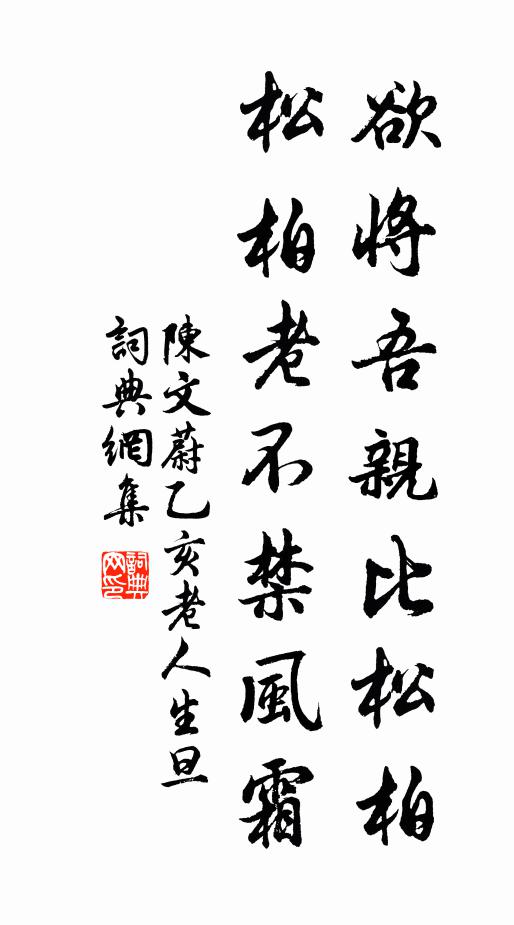 欲將吾親比松柏
松柏老不禁風霜
陳文蔚乙亥老人生旦
詞典網集
詞典網印